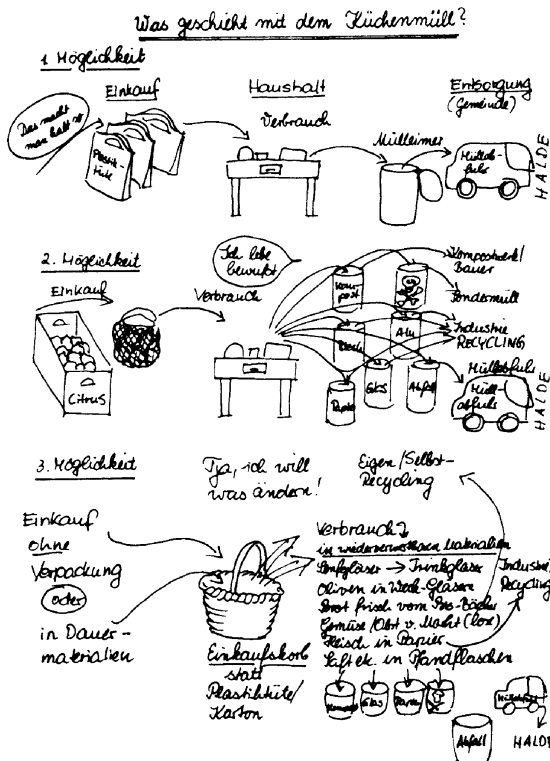 Was geschieht mit dem Küchenmüll?
1. Möglichkeit
Einkauf
Haushalt
Entsorgung
(Gemeinde)
Das macht
man halt so
Plastik-
tüte
Verbrauch
Mülleimer
Müllab-
fuhr
HALDE
2. Möglichkeit
Einkauf
Citrus
Verbrauch
Ich lebe
bewußt
Kom-
post
Alu
Glas
Abfall
Papier
Kompostwerk/
Bauer
Sondermüll
Industrie
RECYCLING
Müllabfuhr
Müll-
abfuhr
HALDE
3. Möglichkeit
Tja, ich will
was ändern!
Eigen/Selbst-
Recycling
Einkauf
ohne
Verpackung
oder
in Dauer-
materialien
Einkaufskorb
statt
Plastiktüte/
Karton
Verbrauch
in wiederverwertbaren Materialien
Senfgläser → Trinkgläser
Oliven in Weck-Gläsern
Brot frisch vom Bio-Bäcker
Gemüse/Obst v. Markt (lose)
Fleisch in Papier
Saft etc. in Pfandflaschen
Industrie
Recycling
Kompost
Glas
Papier
Abfall
Müllabfuhr
HALDE